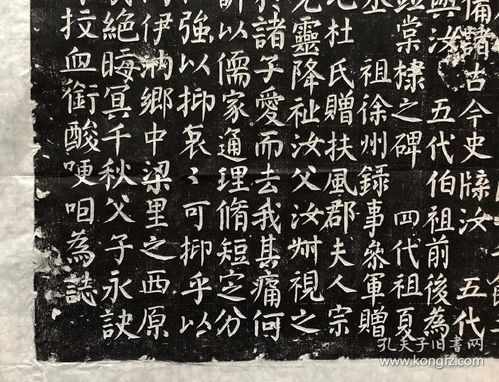 備諸古今史牒汝 五代
與汝 五代伯祖前後為
鐙棠棣之碑 四代祖夏
祖徐州錄事參軍贈
杜氏贈扶風郡夫人宗
靈降祉汝父汝叔視之
於諸子愛而去我其痛何
以儒家通理脩短定分
強以抑哀〻可抑乎以
伊汭鄉中梁里之西原
絕晦冥千秋父子永訣
抆血銜酸哽咽為誌
孔夫子旧书网
www.kongfz.com